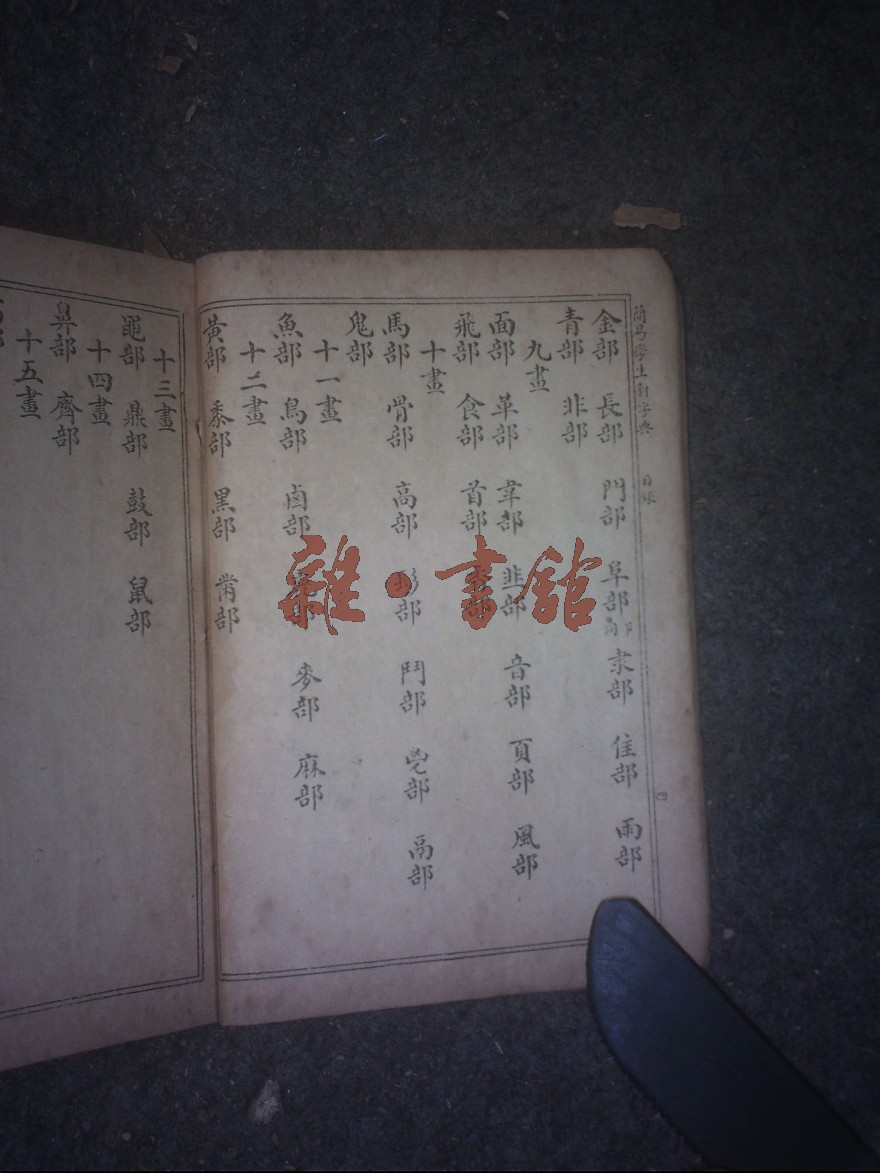 簡易學生新字典 目錄
四
金部 長部 門部 阜部 隶部 隹部 雨部
青部 非部
九畫
面部 革部 韋部 韭部 音部 頁部 風部
飛部 食部 首部
十畫
馬部 骨部 高部 髟部 鬥部 鬯部 鬲部
鬼部
十一畫
魚部 鳥部 鹵部 麥部 麻部
十二畫
黃部 黍部 黑部 黹部
十三畫
黽部 鼎部 鼓部 鼠部
十四畫
鼻部 齊部
十五畫
雜·書館